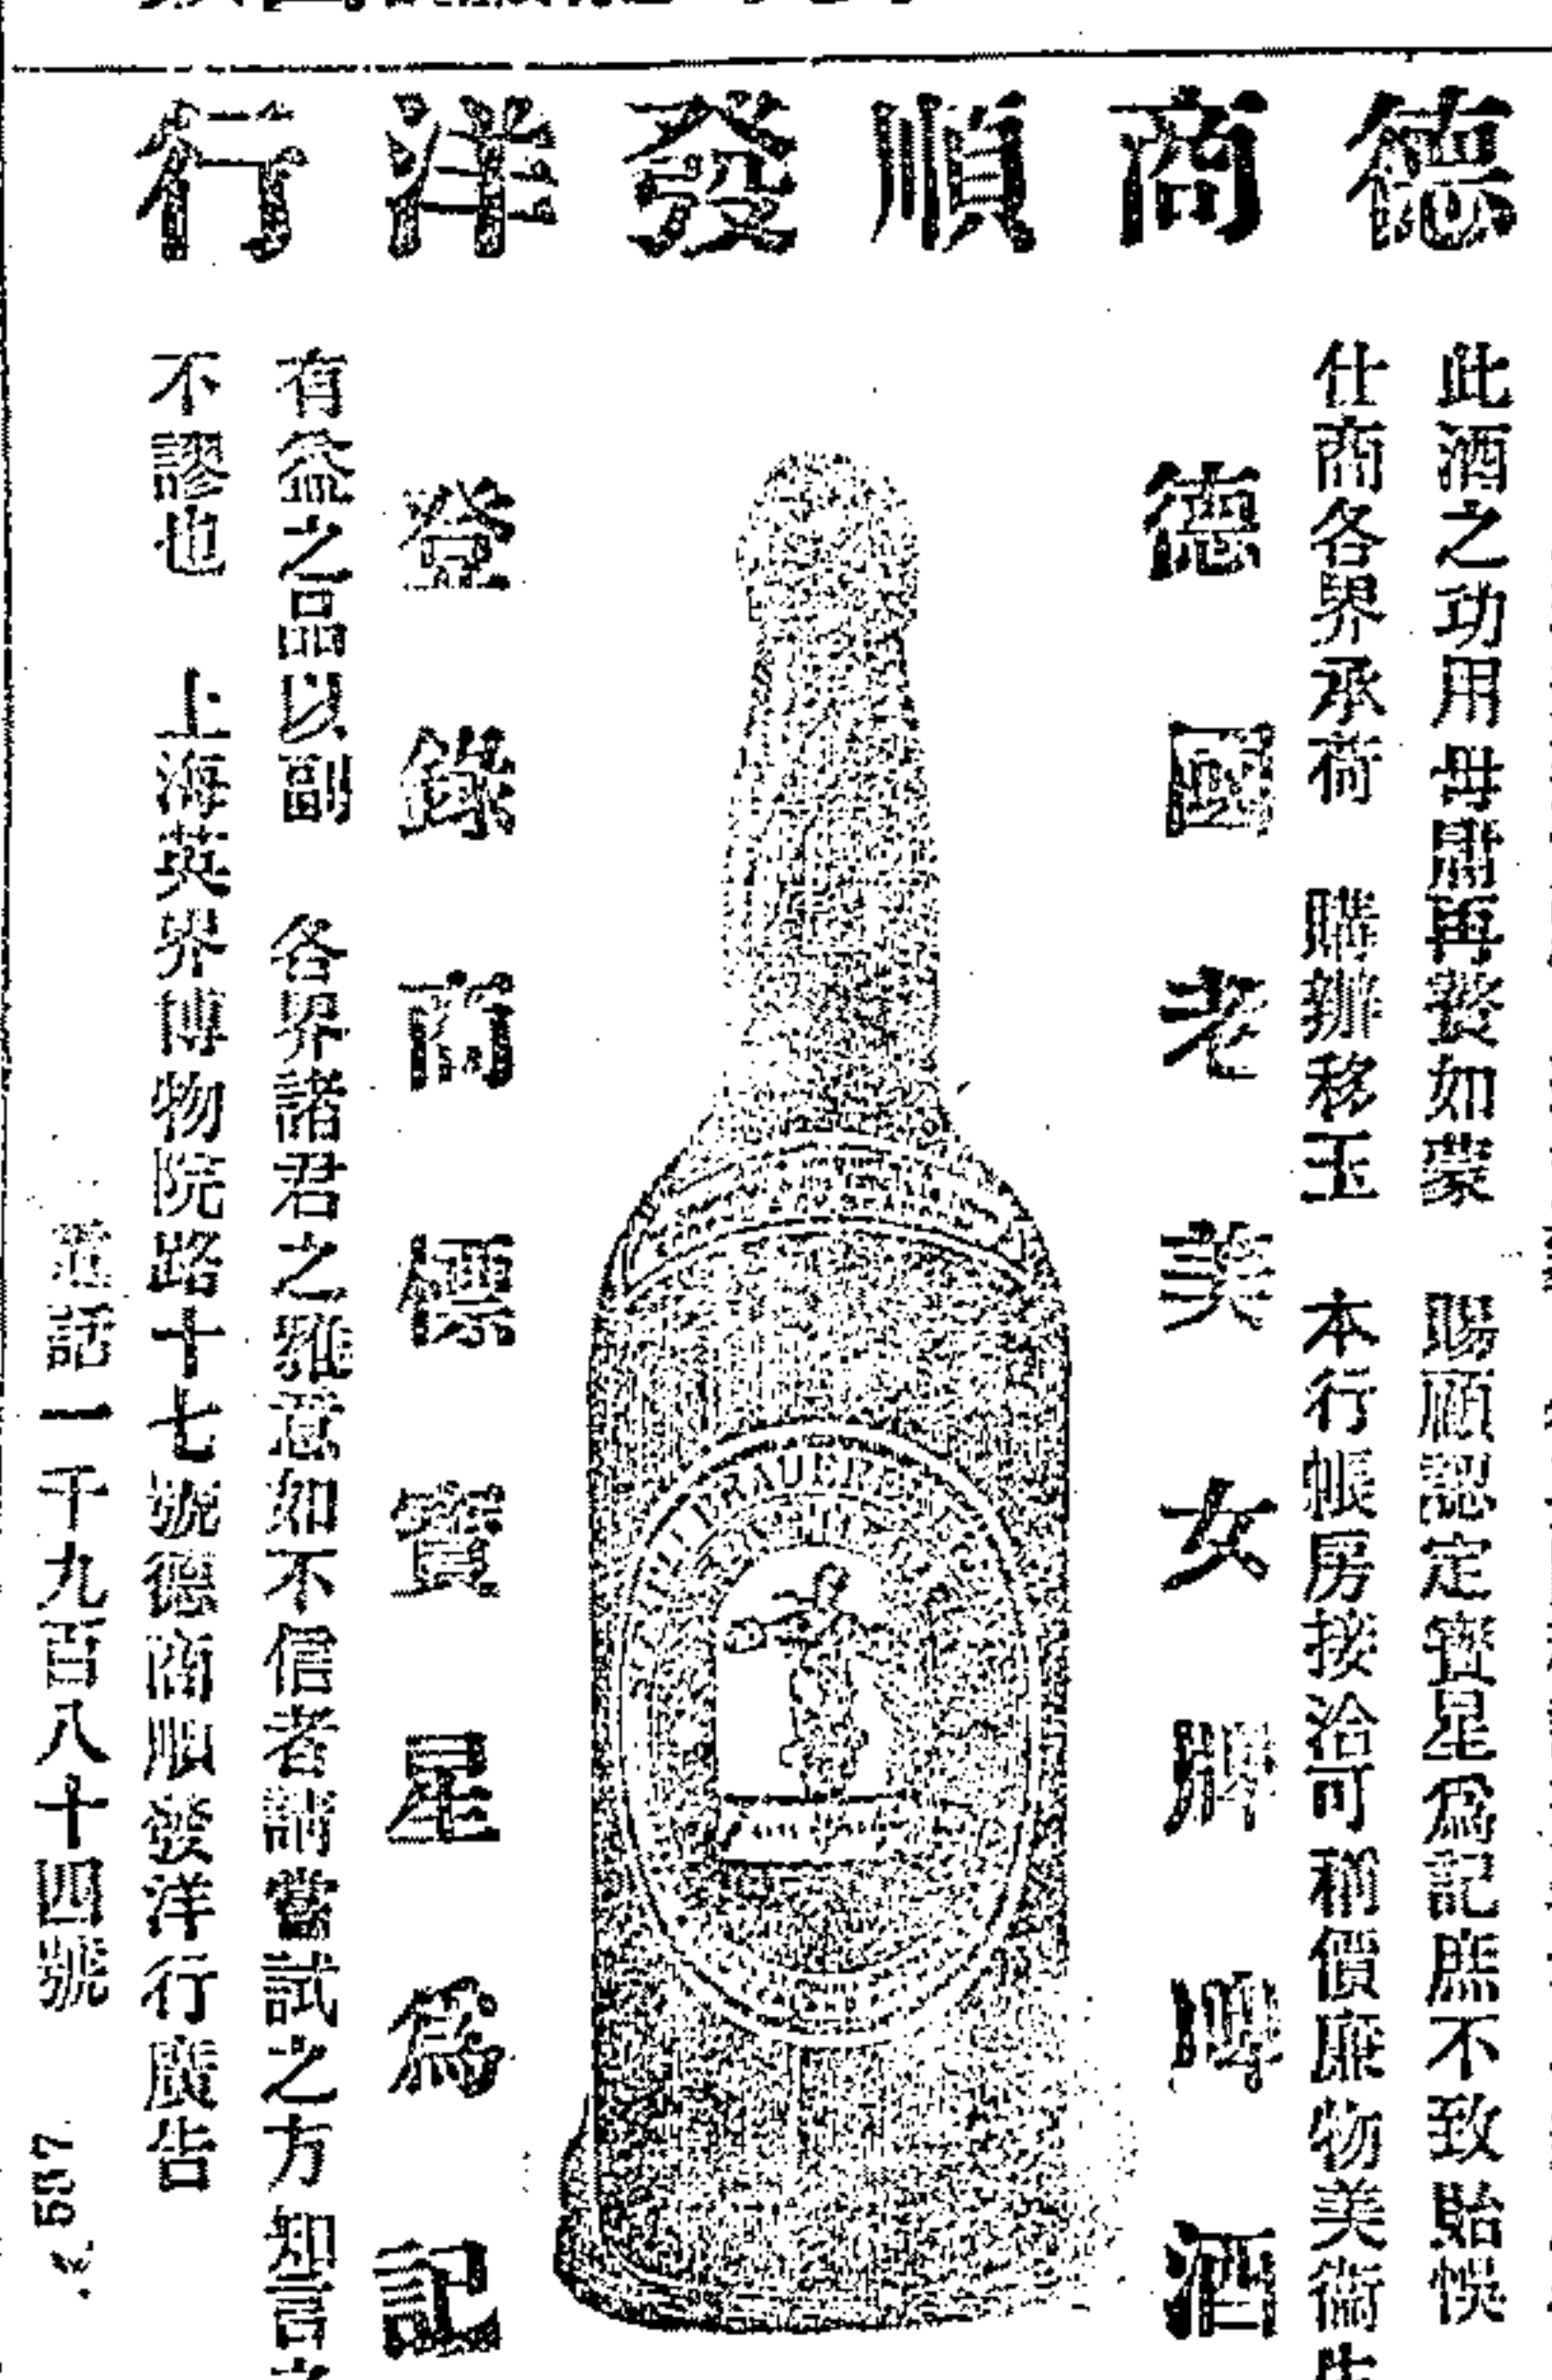 德商順發洋行
此酒之功用毋庸再贅如蒙 賜顧認定寶星為記庶不致貽悞
仕商各界承荷 購辦移玉 本行帳房接洽可稱價廉物美衞生
德國老美女牌啤酒
登錄商標寶星為記
有益之品以副 各界諸君之雅意如不信者請嘗試之方知言之
不謬也 上海英界博物院路十七號德商順發洋行廣告
電話一千九百八十四號
587